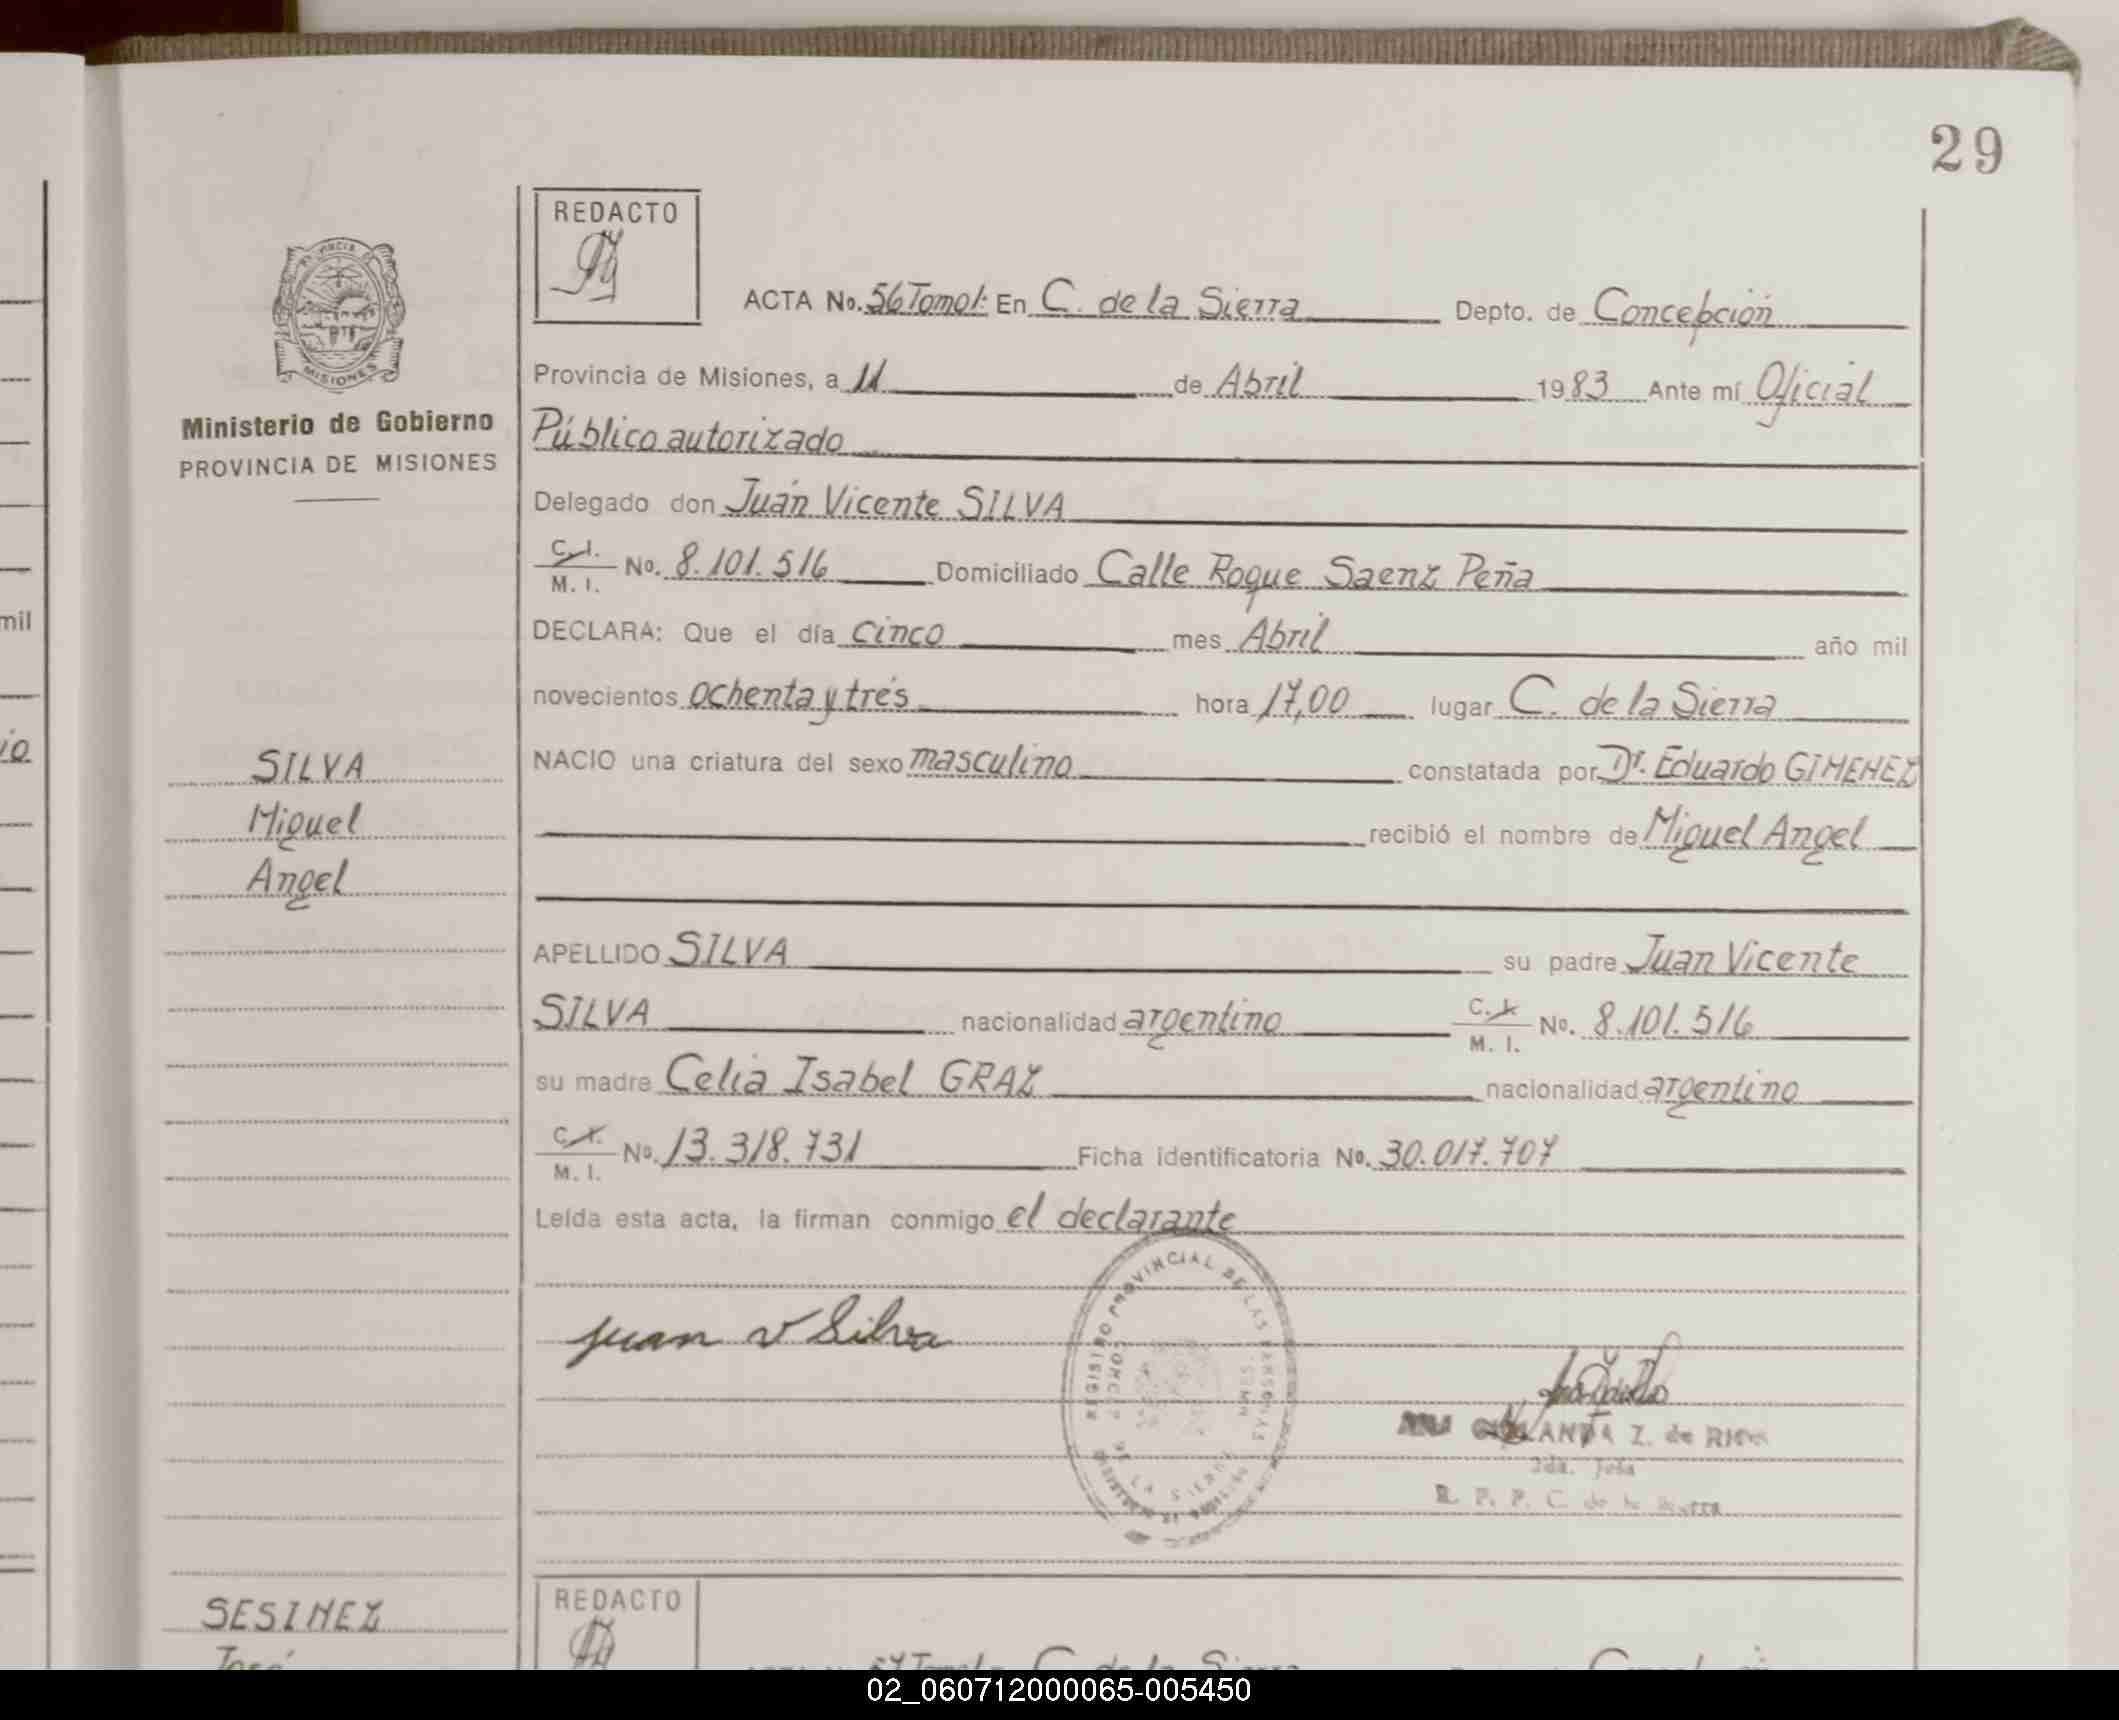 29
REDACTO
PROVINCIA
MISIONES
Ministerio de Gobierno
PROVINCIA DE MISIONES
ACTA No. 56 Tomo I: En C. de la Sierra Depto. de Concepción
Provincia de Misiones, a 11 de Abril 1983 Ante mí Oficial
Público autorizado
Delegado don Juan Vicente SILVA
C.I. M.I. No. 8.101.516 Domiciliado Calle Roque Saenz Peña
DECLARA: Que el día cinco mes Abril año mil
novecientos ochenta y tres hora 17,00 lugar C. de la Sierra
SILVA
Miguel
Angel
NACIO una criatura del sexo masculino constatada por Dr. Eduardo GIMENEZ
recibió el nombre de Miguel Angel
APELLIDO SILVA su padre Juan Vicente
SILVA nacionalidad argentino C.I. M.I. No. 8.101.516
su madre Celia Isabel GRAZ nacionalidad argentino
C.I. M.I. No. 13.318.731 Ficha identificatoria No. 30.017.707
Leída esta acta, la firman conmigo el declarante
Juan V Silva
REGISTRO PROVINCIAL DE LAS PERSONAS
DE LA SIERRA
Z. de
R. P. P. C. de la Sierra
mil
io
SESINEZ
José
REDACTO
57 Tomo I: C. de la Sierra
02_060712000065-005450